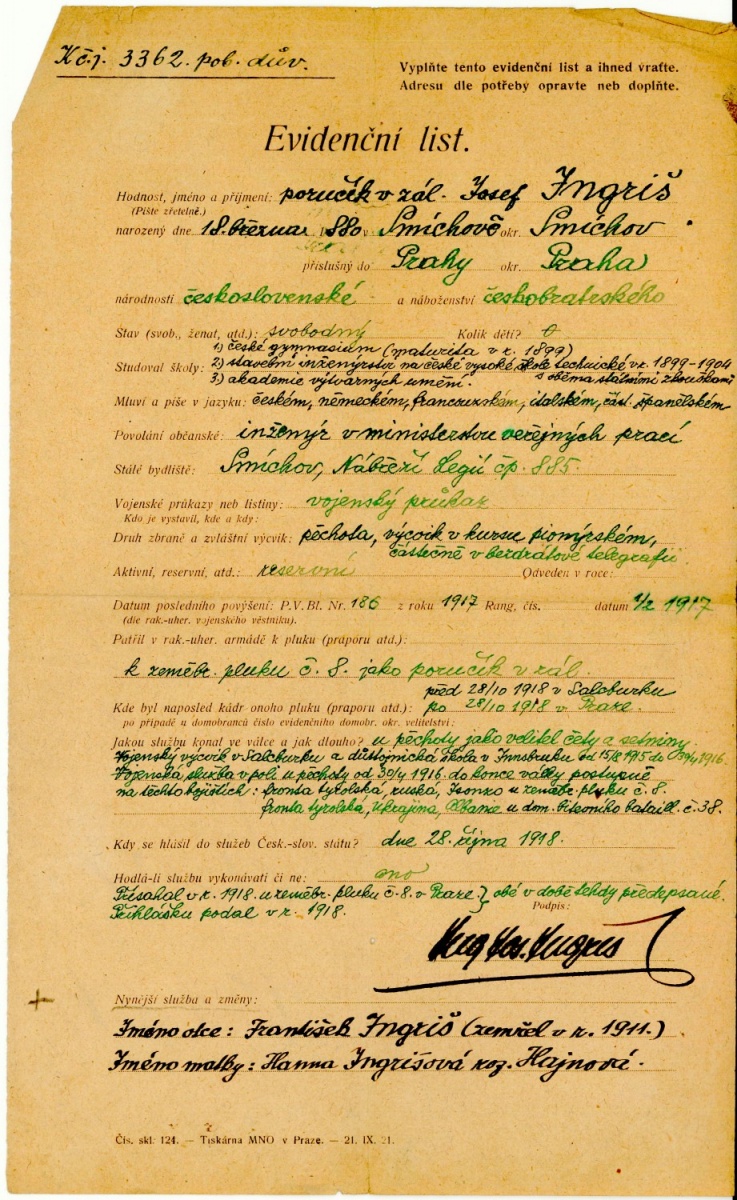 K č.j. 3362. pob. dův.
Vyplňte tento evidenční list a ihned vraťte.
Adresu dle potřeby opravte neb doplňte.
Evidenční list.
Hodnost, jméno a příjmení: poručík v zál. Josef Ingriš
(Pište zřetelně.)
narozený dne 18. března 1880 v Smíchově okr. Smíchov
příslušný do Prahy okr. Praha
národnosti československé a náboženství českobratrského
Stav (svob., ženat, atd.): svobodný Kolik dětí? 0
1) české gymnasium (maturita v r. 1899)
Studoval školy: 2) stavební inženýrství na české vysoké škole technické v r. 1899-1904
3) akademie výtvarných umění. s oběma státními zkouškami
Mluví a píše v jazyku: českém, německém, francouzském, italském, část. španělském
Povolání občanské: inženýr v ministerstvu veřejných prací
Stálé bydliště: Smíchov, Nábřeží Legií čp. 885.
Vojenské průkazy neb listiny: vojenský průkaz
Kdo je vystavil, kde a kdy:
Druh zbraně a zvláštní výcvik: pěchota, výcvik v kursu pionýrském,
částečně v bezdrátové telegrafii
Aktivní, reservní, atd.: reservní Odveden v roce:
Datum posledního povýšení: P.V.Bl. Nr. 186 z roku 1917 Rang. čís. datum 1/2 1917
(dle rak.-uher. vojenského věstníku).
Patřil v rak.-uher. armádě k pluku (praporu atd.):
k zeměbr. pluku č. 8. jako poručík v zál.
před 28/10 1918 v Salcburku
Kde byl naposled kádr onoho pluku (praporu atd.): po 28/10 1918 v Praze.
po případě u domobranců číslo evidenčního domobr. okr. velitelství:
Jakou službu konal ve válce a jak dlouho? u pěchoty jako velitel čety a setniny
Vojenský výcvik v Salcburku a důstojnická škola v Innsbruku od 15/2 1915 do 1916.
Vojenská služba v poli u pěchoty od 30/4 1916. do konce války postupně
na těchto bojištích: fronta tyrolská, ruská, Isonzo u zeměbr. pluku č. 8.
fronta tyrolská, Ukrajina, Albanie u dom. bitevního bataill. č. 38.
Kdy se hlásil do služeb Česk.-slov. státu? dne 28. října 1918.
Hodlá-li službu vykonávati či ne: ano
Přísahal v r. 1918. u zeměbr. pluku č. 8. v Praze. } obé v době tehdy předepsané.
Přihlášku podal v r. 1918.
Podpis:
Ing Jos. Ingriš
Nynější služba a změny:
Jméno otce: František Ingriš (zemřel v r. 1911.)
Jméno matky: Hanna Ingrišová roz. Hajnová.
Čís. skl. 124. — Tiskárna MNO v Praze. — 21. IX. 21.